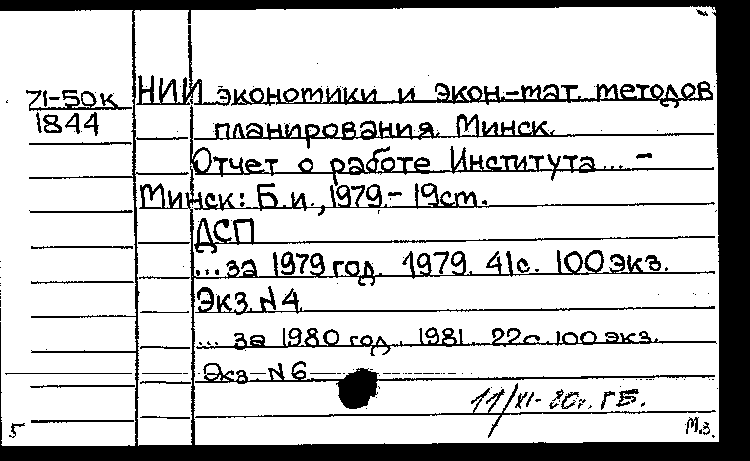 71-50к
1844
НИИ экономики и экон.-мат. методов
планирования. Минск.
Отчет о работе Института... -
Минск: Б.и., 1979.- 19см.
ДСП
...за 1979 год. 1979. 41с. 100 экз.
Экз. N4
... за 1980 год. 1981. 22с. 100 экз.
Экз. N6
11/XI-80г. ГБ.
5
М.З.